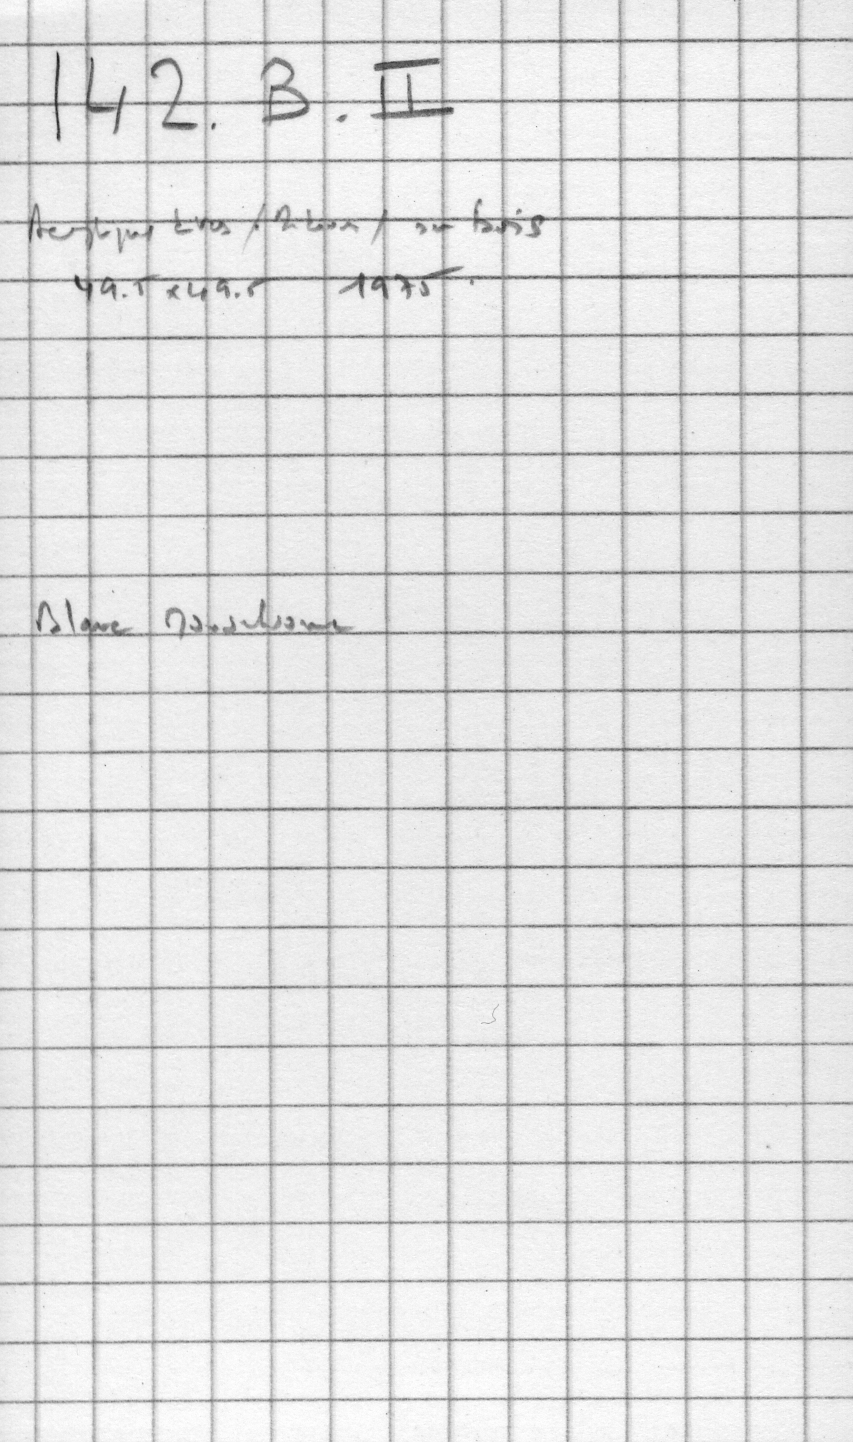 142. B. II
Acrylique / sur bois
49.5 x 49.5 1975.
Blanc Monochrome